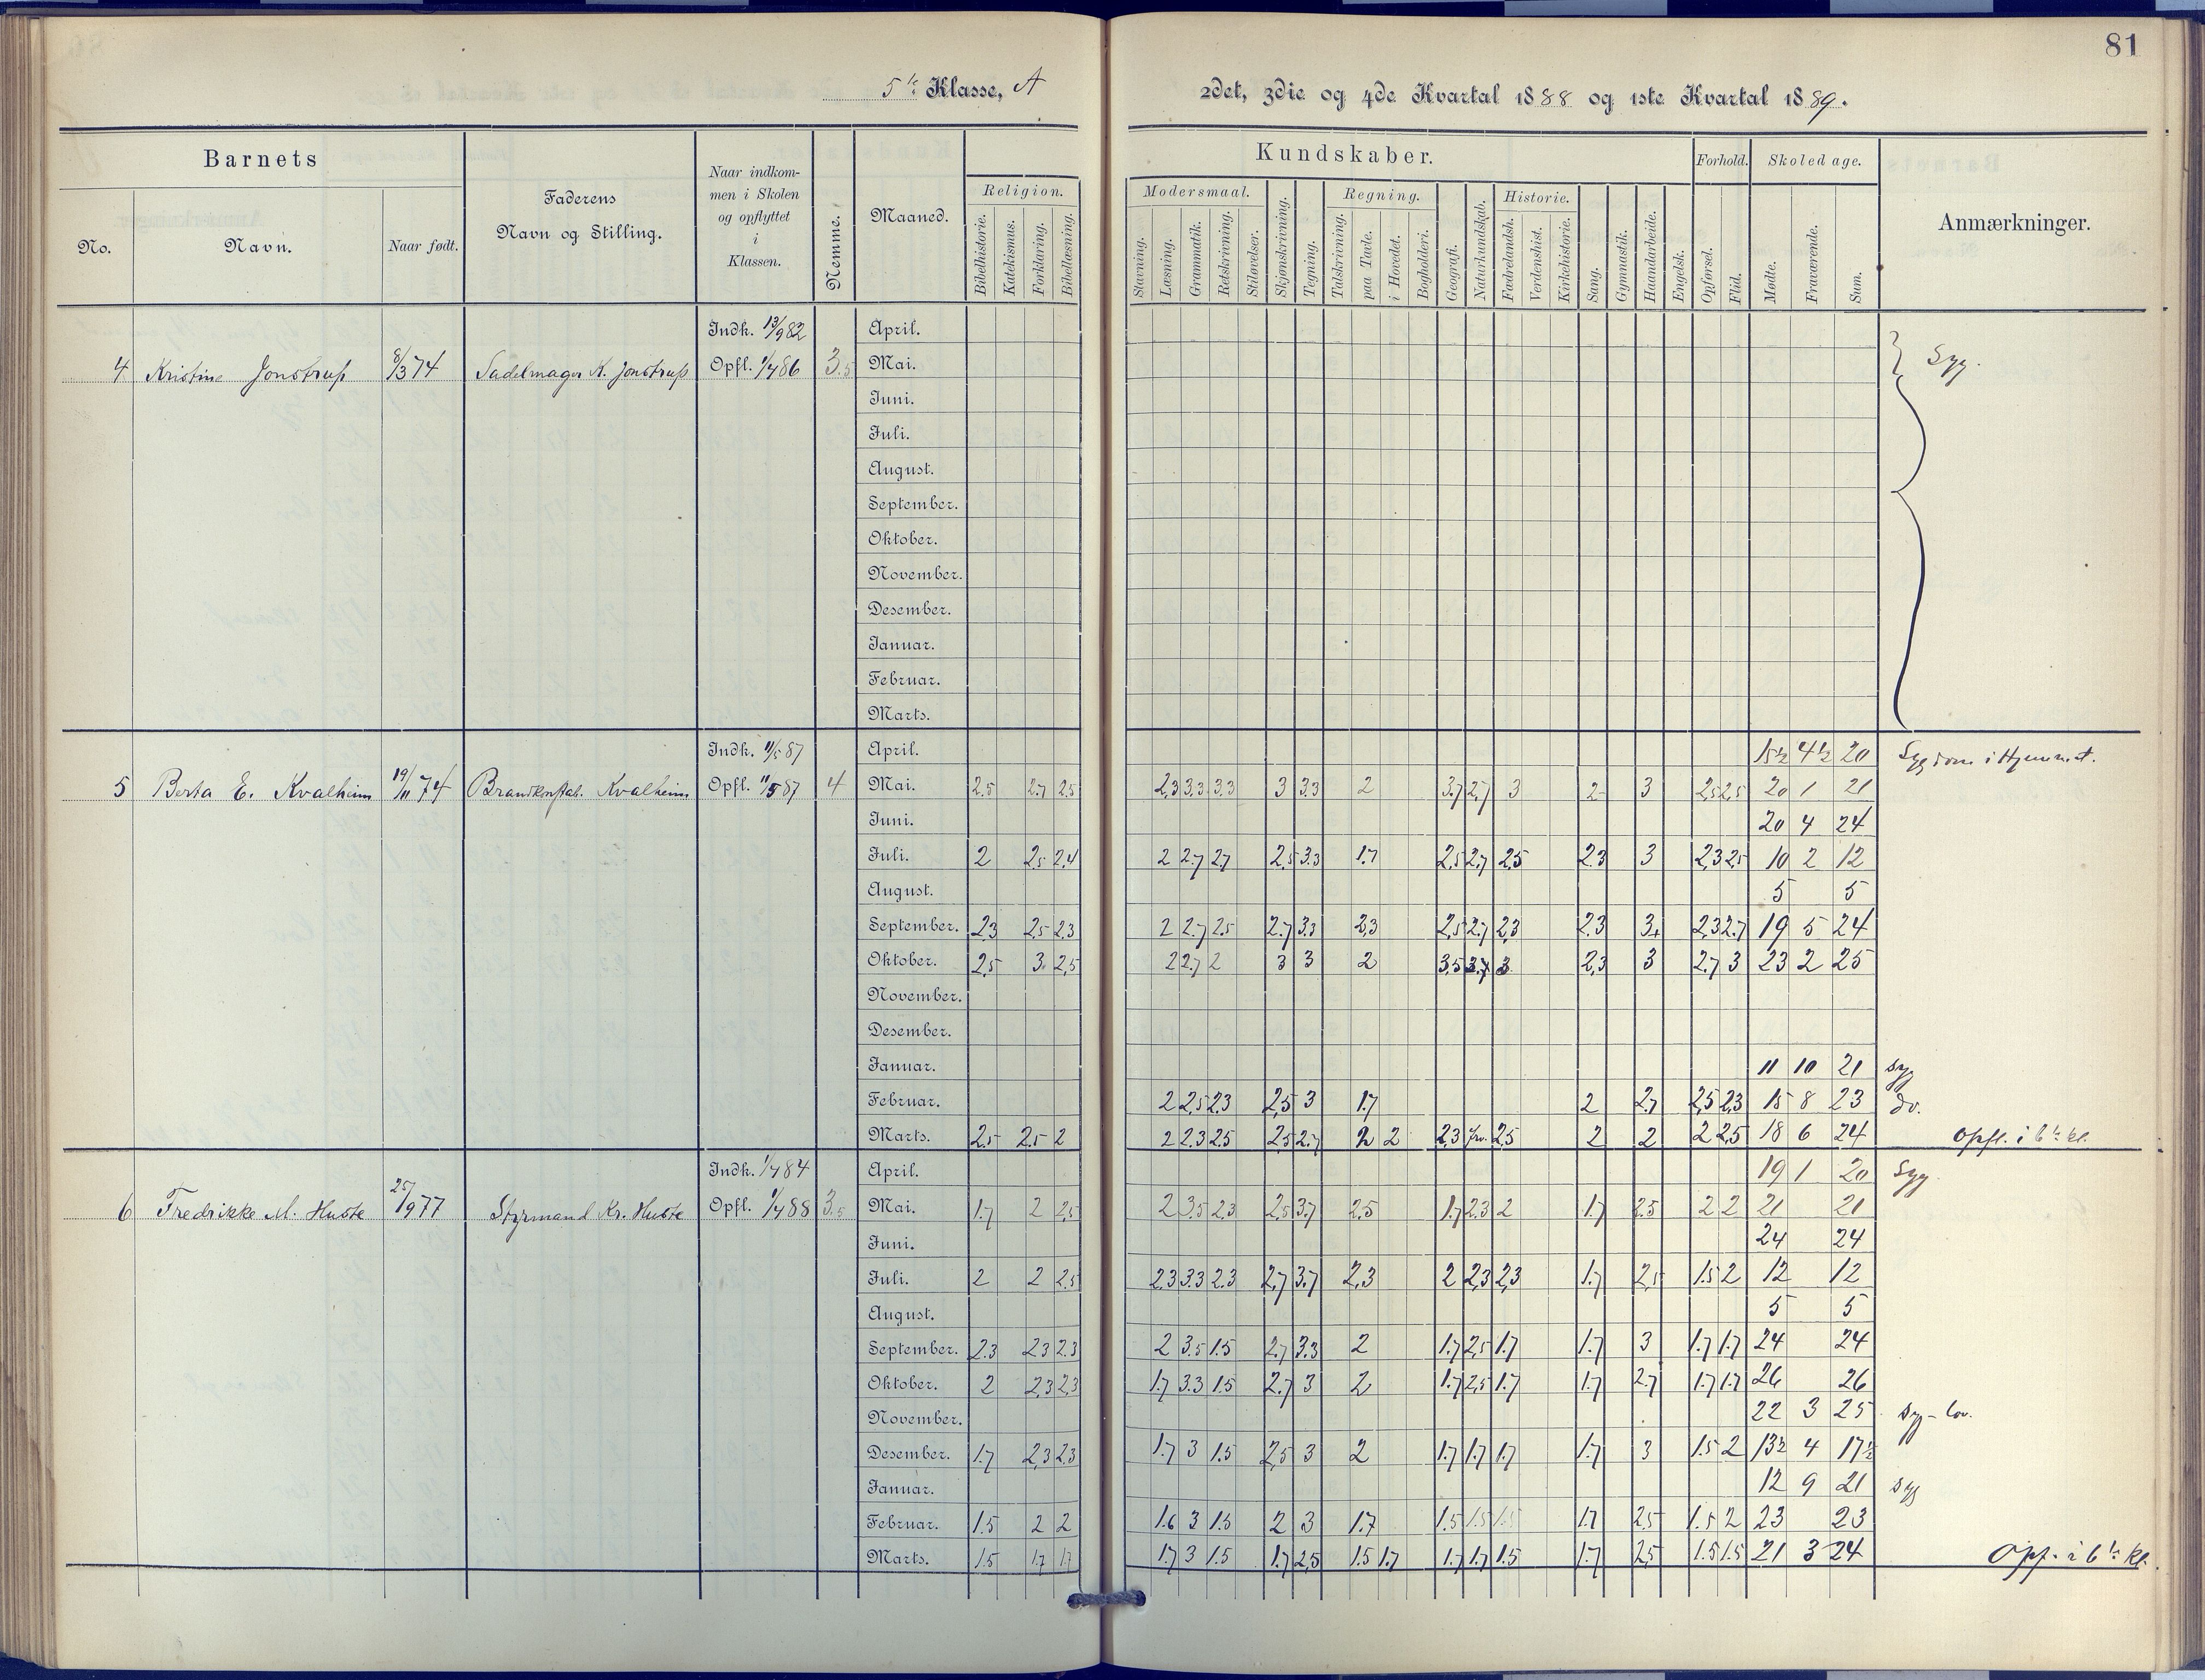 81
5te Klasse, A
2det, 3die og 4de Kvartal 1888 og 1ste Kvartal 1889.
Barnets
No.
Navn.
Naar født.
Faderens
Navn og Stilling.
Naar indkom-
men i Skolen
og opflyttet
i
Klassen.
Nemme.
Maaned.
Kundskaber.
Religion.
Bibelhistorie.
Katekismus.
Forklaring.
Bibellæsning.
Modersmaal.
Stavning.
Læsning.
Grammatik.
Retskrivning.
Stiløvelser.
Skjønskrivning.
Tegning.
Regning.
Talskrivning.
paa Tavle.
i Hovedet.
Bogholderi.
Geografi.
Naturkundskab.
Historie.
Fædrelandsh.
Verdenshist.
Kirkehistorie.
Sang.
Gymnastik.
Haandarbeide.
Engelsk.
Forhold.
Opførsel.
Flid.
Skoledage.
Mødte.
Fraværende.
Sum.
Anmærkninger.
Indk. 13/9 82 April.
4 Kristine Jonstrup 8/3 74 Sadelmager K. Jonstrup Opfl. 1/4 86 3.5 Mai. Syg.
Juni.
Juli.
August.
September.
Oktober.
November.
Desember.
Januar.
Februar.
Marts.
Indk. 11/5 87 April. 15½ 4½ 20 Sygdom i Hjemmet.
5 Berta E. Kvalheim 19/11 74 Brandkonstab. Kvalheim Opfl. 11/5 87 4 Mai. 2.5 2.7 2.5 2,3 3.3 3.3 3 3.3 2 3.7 2.7 3 2 3 2,5 2.5 20 1 21
Juni. 20 4 24
Juli. 2 2.5 2.4 2 2.7 2.7 2.5 3.3 1.7 2.5 2.7 2.5 2.3 3 2,3 2.5 10 2 12
August. 5 5
September. 2.3 2.5 2.3 2 2.7 2.5 2.7 3.3 2,3 2,5 2.7 2,3 2.3 3+ 2,3 2.7 19 5 24
Oktober. 2,5 3 2,5 2 2.7 2 3 3 2 3.5 3.7 3 2,3 3 2.7 3 23 2 25
November.
Desember.
Januar. 11 10 21 syg
Februar. 2 2.5 2.3 2,5 3 1.7 2 2.7 2,5 2.3 15 8 23 do.
Marts. 2.5 2.5 2 2 2.3 2.5 2.5 2.7 2 2 2.3 2.5 2 2 2 2.5 18 6 24 Opfl. i 6te kl.
Indk. 1/4 84 April. 19 1 20 Syg
6 Fredrikke M. Huste 25/9 77 Styrmand Kr. Huste Opfl. 1/4 88 3.5 Mai. 1.7 2 2,5 2 3.5 2.3 2.5 3.7 2.5 1.7 2.3 2 1.7 2.5 2 2 21 21
Juni. 24 24
Juli. 2 2 2.5 2.3 3.3 2.3 2,7 3.7 2,3 2 2,3 2,3 1.7 2.5 1.5 2 12 12
August. 5 5
September. 2.3 2.3 2.3 2 3.5 1.5 2.7 3.3 2 1.7 2,5 1.7 1.7 3 1.7 1.7 24 24
Oktober. 2 2,3 2,3 1.7 3.3 1.5 2.7 3 2 1.7 2,5 1.7 1.7 2.7 1.7 1.7 26 26
November. 22 3 25 syg - lov.
Desember. 1.7 2,3 2.3 1.7 3 1.5 2,5 3 2 1.7 1.7 1.7 1.7 3 1.5 2 13½ 4 17½
Januar. 12 9 21 syg
Februar. 1.5 2 2 1.6 3 1.5 2 3 1.7 1.5 1.5 1.5 1.7 2.5 1.5 2 23 23
Marts. 1.5 1.7 1.7 1.7 3 1.5 1.7 2.5 1.5 1.7 1.7 1.7 1.5 1.7 2.5 1.5 1.5 21 3 24 Opf. i 6te kl.